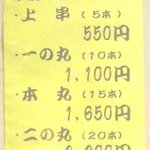 ・上串(5本)
550円
・一の丸(10本)
1,100円
・本丸(15本)
1,650円
・二の丸(20本)